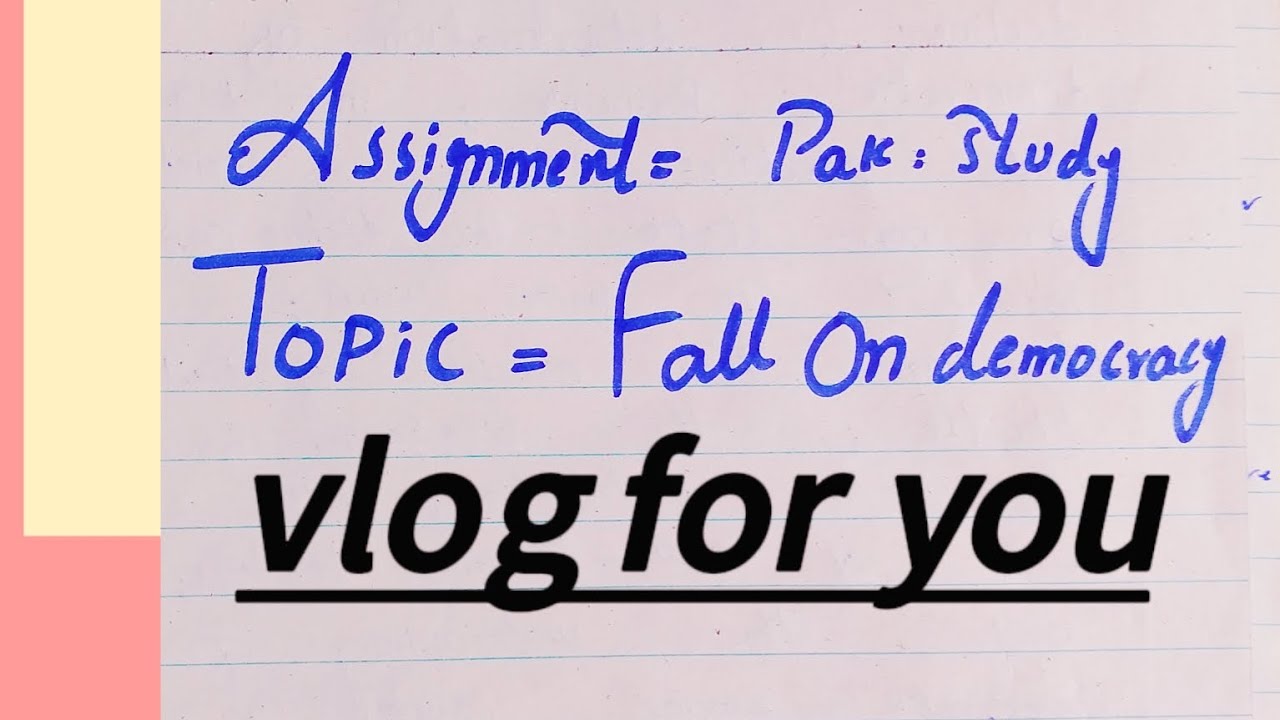 Assignment = Pak: Study
Topic = Fall On democracy
vlog for you